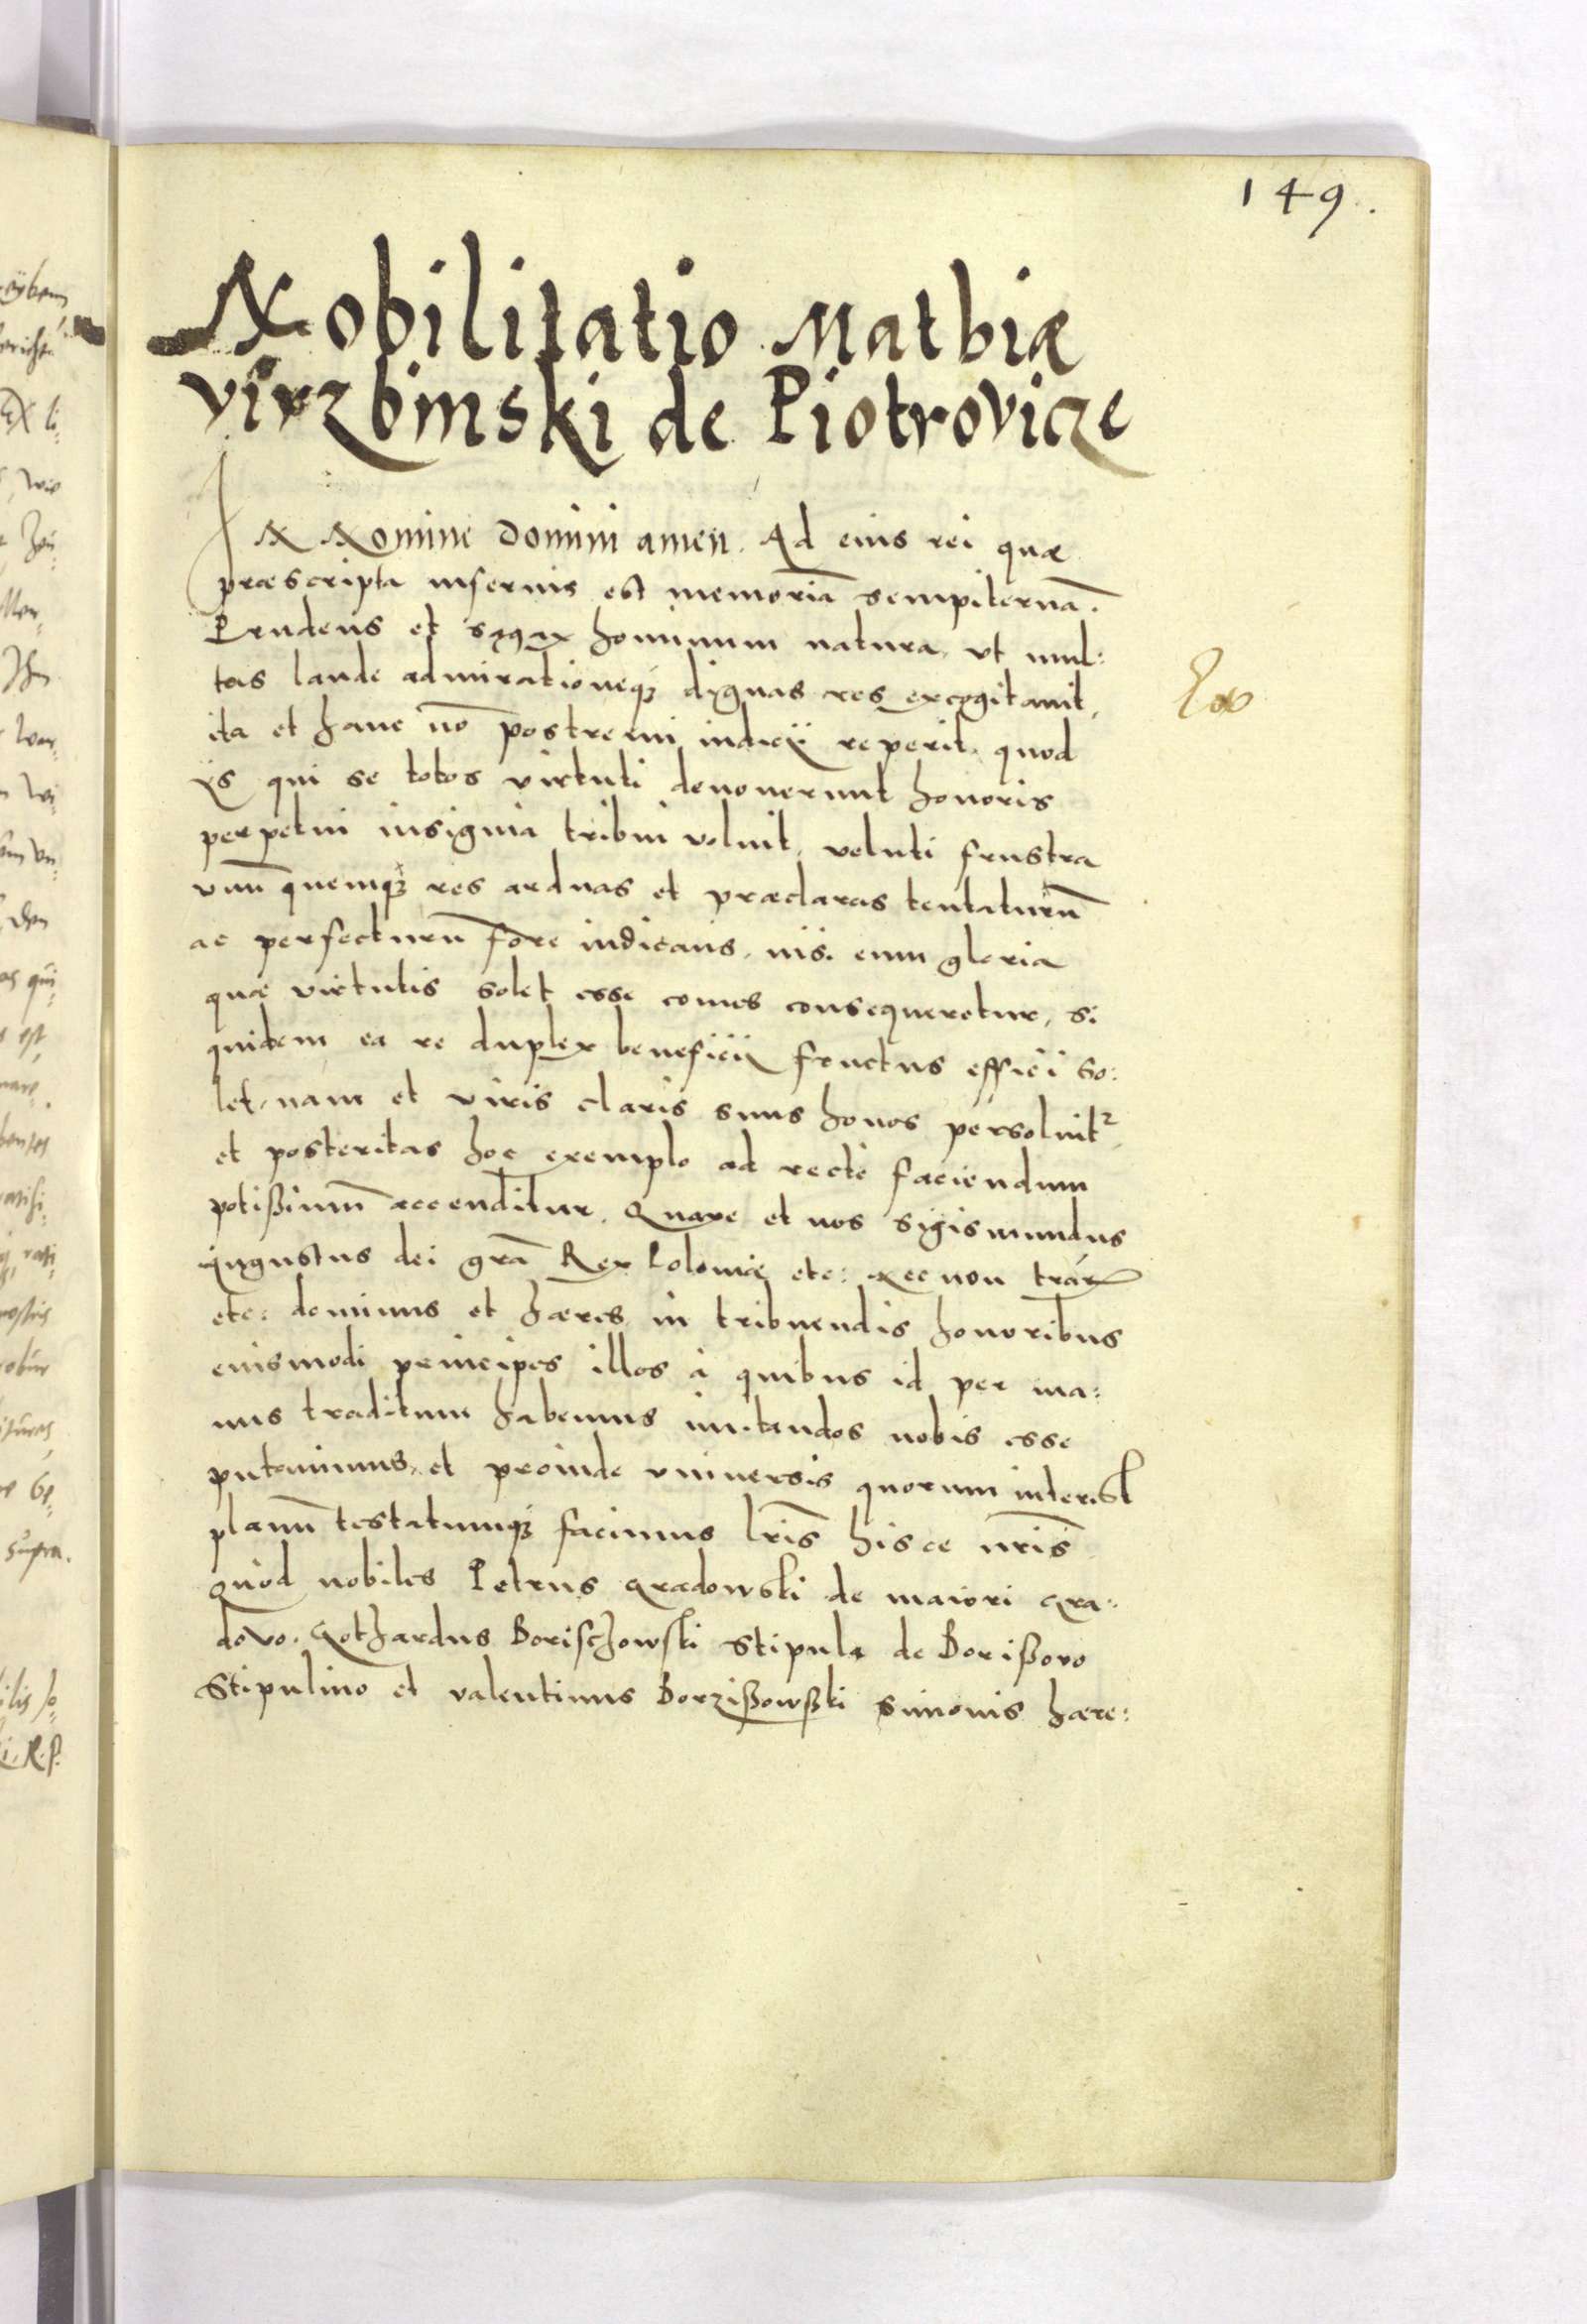 149.
Nobilitatio Mathiæ
Virzbinski de Piotrovicze
IN Nomine Domini amen. Ad eius rei quæ
præscripta inseruis est memoriā sempiternā.
Prudens et sagax hominum natura, ut mul:
tas laude admirationeq3 dignas res excogitauit,
ita et hanc nō postremi iudicij reperit, quod
ijs qui se totos virtuti deuouerunt honoris
perpetui insignia tribui voluit, veluti frustra
vnū quemq3 res arduas et præclaras tentaturū
ac perfecturū fore iudicans, nisi eum gloria
quæ virtutis solet esse comes consequeretur, si
quidem ea re duplex beneficij fructus effici so:
let, nam et viris claris suus honos persoluit2,
et posteritas hoc exemplo ad recte faciendum
potißimū accenditur. Quare et nos Sigismundus
Augustus dei grā Rex Poloniæ etc: Nec non trār
etc: dominus et hæres in tribuendis honoribus
eiusmodi principes illos à quibus id per ma:
nus traditum habemus imitandos nobis esse
putauimus, et proinde vniuersis quorum interest
planū testatumq3 facimus lrīs hisce nrīs
quod nobiles Petrus Gradowski de maiori Gra:
dovo, Gothardus Borischowski Stipula de Borißovo
Stipulino et valentinus Borzißowßki Simonis hære: